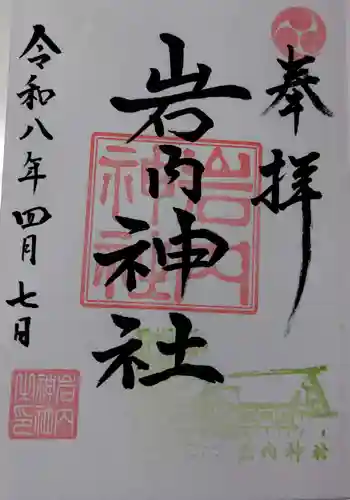 奉拝
岩内神社
岩内神社
令和八年四月七日
岩内神社之印
岩内神社